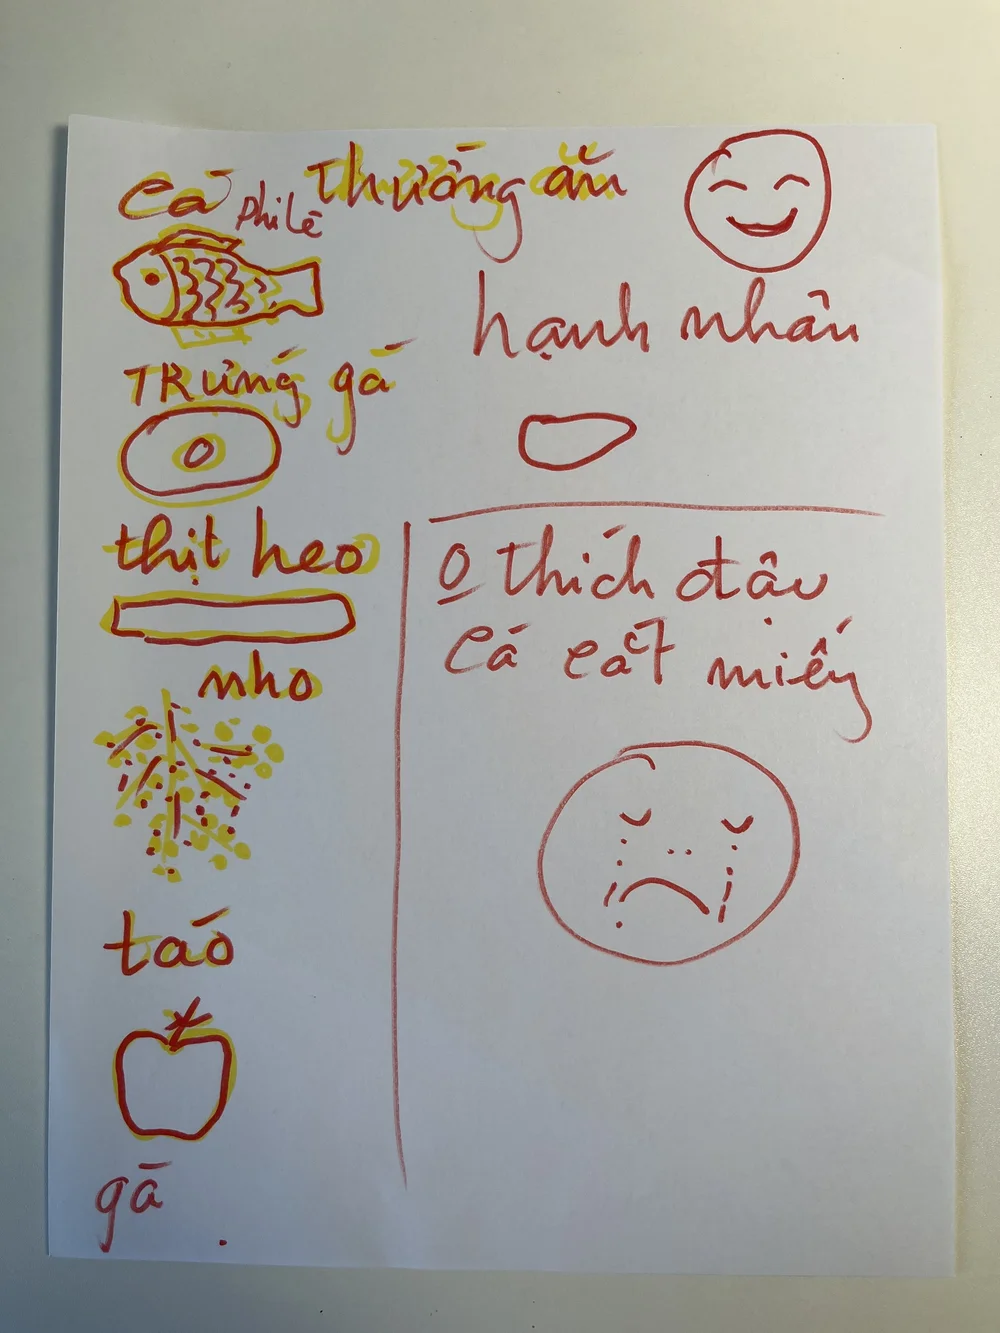 Cá phi lê thường ăn
hạnh nhân
TRứng gà
thịt heo
nho
táo
gà
0 thích đậu
Cá cắt miếng